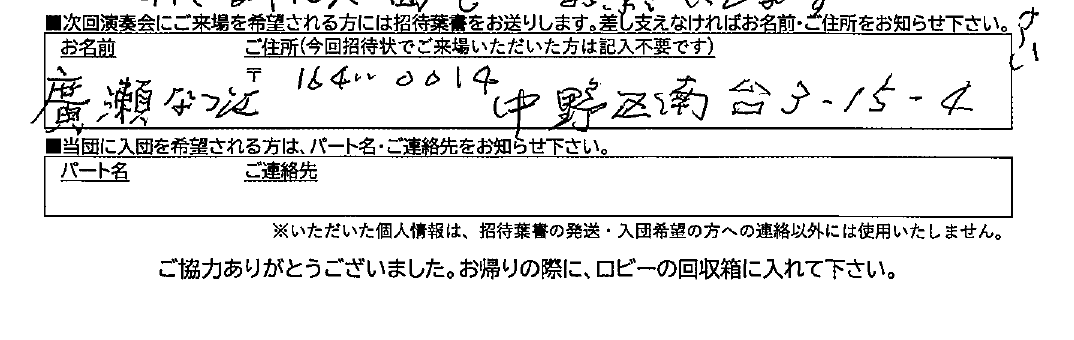 ■次回演奏会にご来場を希望される方には招待葉書をお送りします。差し支えなければお名前・ご住所をお知らせ下さい。
お名前 ご住所(今回招待状でご来場いただいた方は記入不要です)
〒 164-0014
廣瀬なつ江 中野区南台3-15-4
■当団に入団を希望される方は、パート名・ご連絡先をお知らせ下さい。
パート名 ご連絡先
※いただいた個人情報は、招待葉書の発送・入団希望の方への連絡以外には使用いたしません。
ご協力ありがとうございました。お帰りの際に、ロビーの回収箱に入れて下さい。